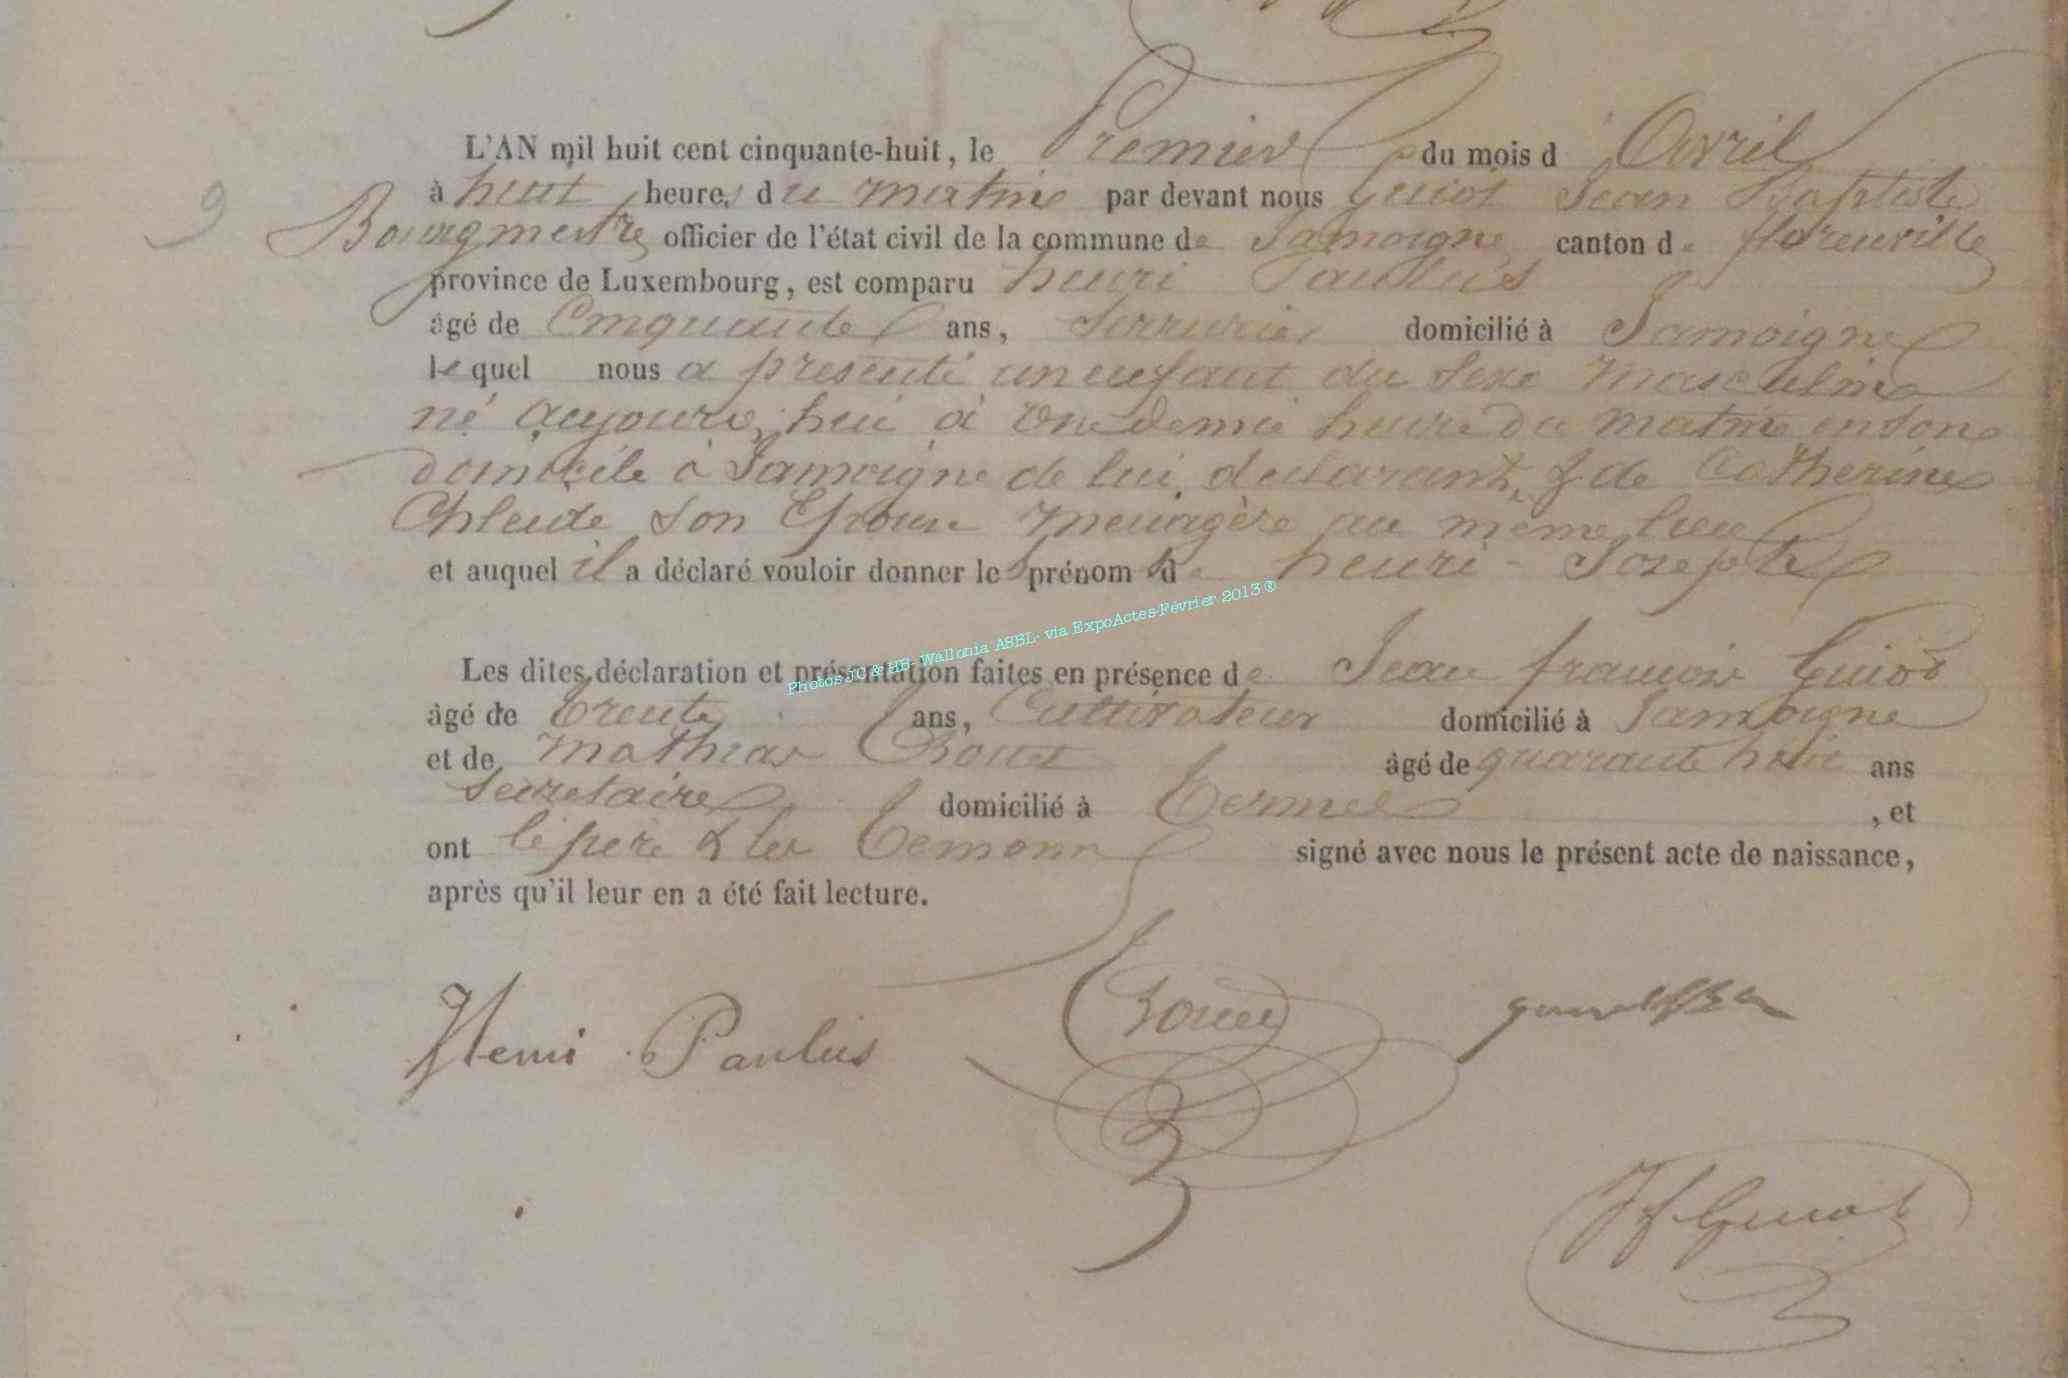 L'AN mil huit cent cinquante-huit, le Premier du mois d'Avril
9
à huit heures du matin par devant nous Guiot Jean Baptiste
Bourgmestre officier de l'état civil de la commune de Jamoigne canton de florenville
province de Luxembourg, est comparu henri Paulus
âgé de Cinquante ans, Serrurier domicilié à Jamoigne
lequel nous a presenté un enfant du sexe masculin
né aujourd'hui à une demie heure du matin en son
domicile à Jamoigne de lui déclarant, & de Catherine
son Epouse menagère au même lieu
et auquel il a déclaré vouloir donner les prénoms de henri-Joseph
Photos JC & HS- Wallonia ASBL- via ExpoActes-Février 2013®
Les dites déclaration et présentation faites en présence de Jean françois Guiot
âgé de trente ans, Cultivateur domicilié à Jamoigne
et de Mathias âgé de quarante huit ans
Secretaire domicilié à Termes, et
ont le père & les temoins signé avec nous le présent acte de naissance,
après qu'il leur en a été fait lecture.
Henri Paulus
JfGuiot